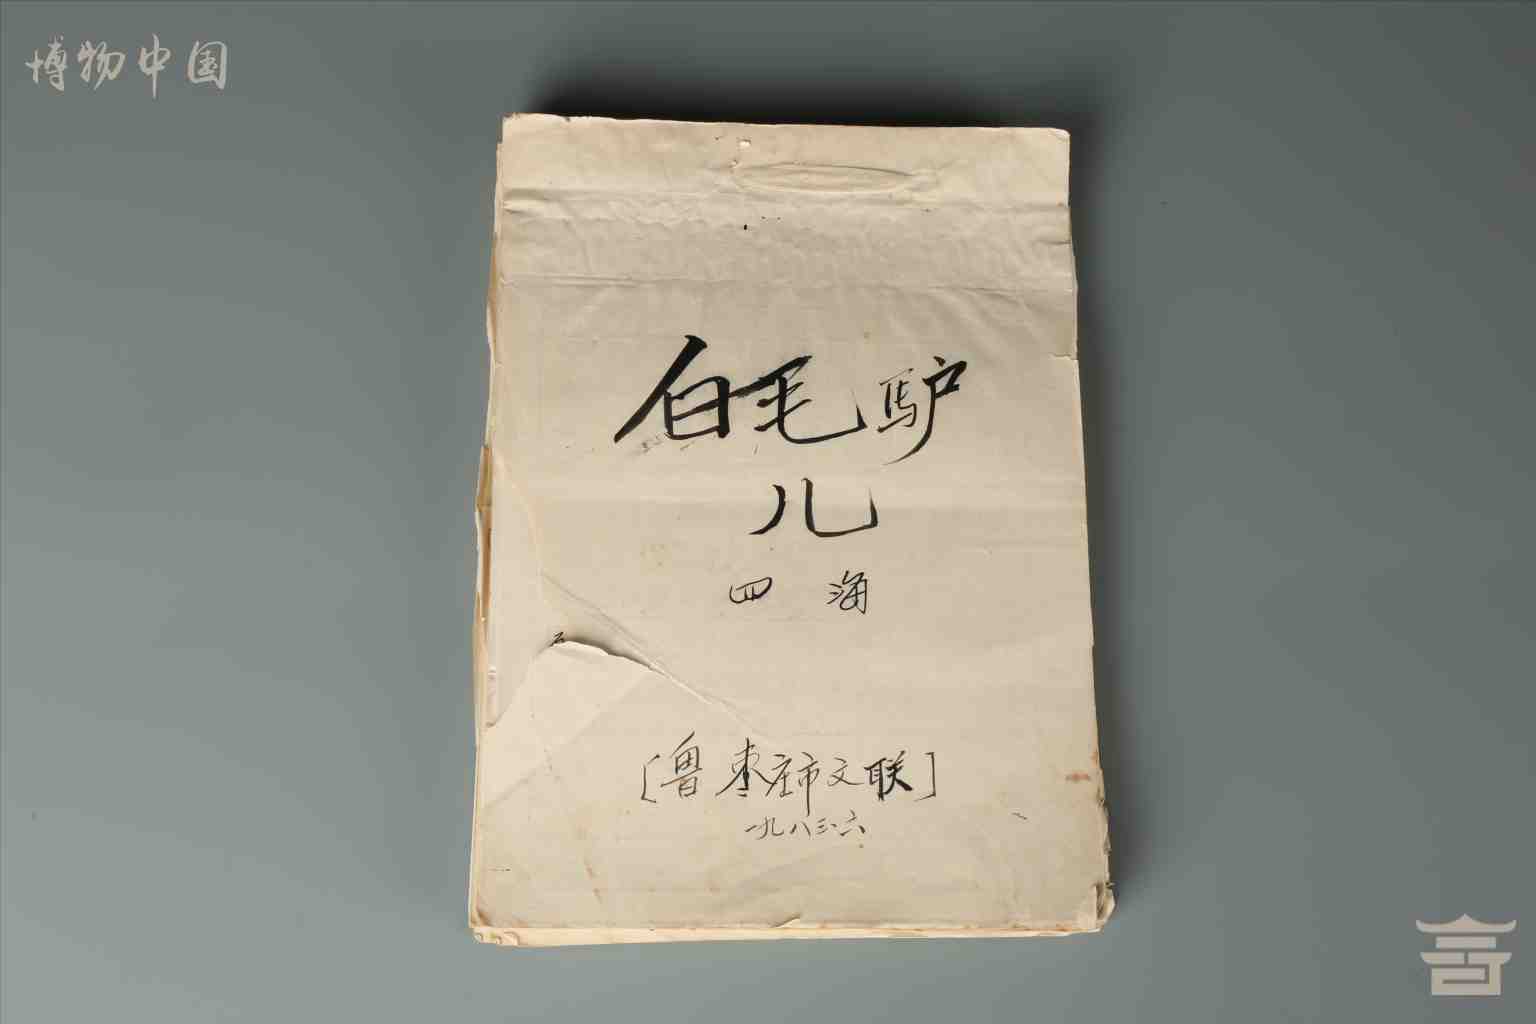 博物中国
白毛驴
儿
四海
[鲁枣庄市文联]
一九八三·六